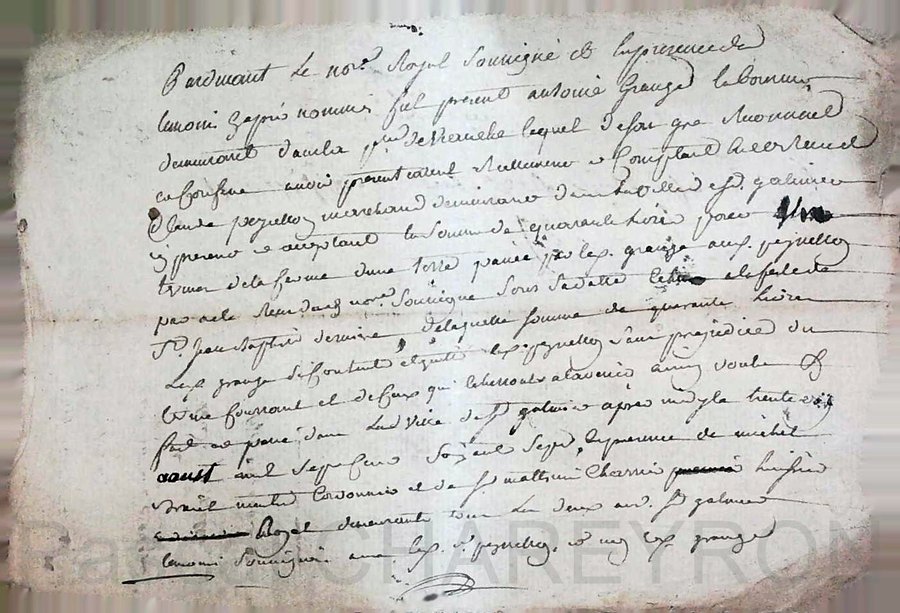 Pardevant Le nore Royal Soussigné Et En presence des
temoins Cy aprés nommés fut present antoine Grange laboureur
demeurant lequel de son gré Reconnait
et Confesse avoir presentement Reellement et Comptant Receu de
Claude peyrellon marchand demeurant dans la Ville de St galmier
cy present et acceptant la Somme de quarante livres pour
terme de la ferme d'une terre passée par led. grange aud. peyrellon
par acte Receu dud. nore. Soussigné Sous Sa datte a la feste de
St. Jean Baptiste derniere de laquelle Somme de quarante livres
Led. grange Se Contente et quitte led. peyrellon Sans prejudice du
terme Courrant et de Ceux qui a lavenir ainsy voulu &
fait et passé dans Lad. Ville de St. galmier aprés midy le trente
aoust mil Sept Cent Soixante Sept, En presence de michel
maitre Cordonnier et de Sr. mathieu Charrin huissier
Royal demeurants tous Les deux aud. St galmier
temoins Soussignés avec led. Sr. peyrellon, et non led. grange
Patrick CHAREYRON